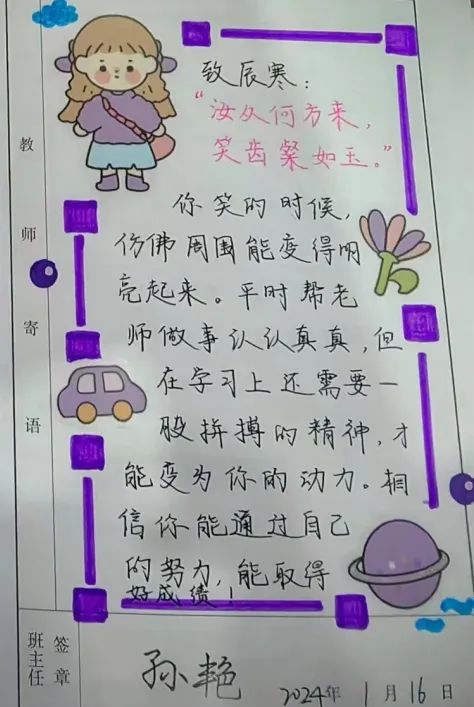 教师寄语
致辰寒：
“汝从何方来，
笑齿粲如玉。”
你笑的时候，
仿佛周围能变得明
亮起来。平时帮老
师做事认认真真，但
在学习上还需要一
股拼搏的精神，才
能变为你的动力。相
信你能通过自己
的努力，能取得
好成绩！
班主任
签章
孙艳
2024年1月16日